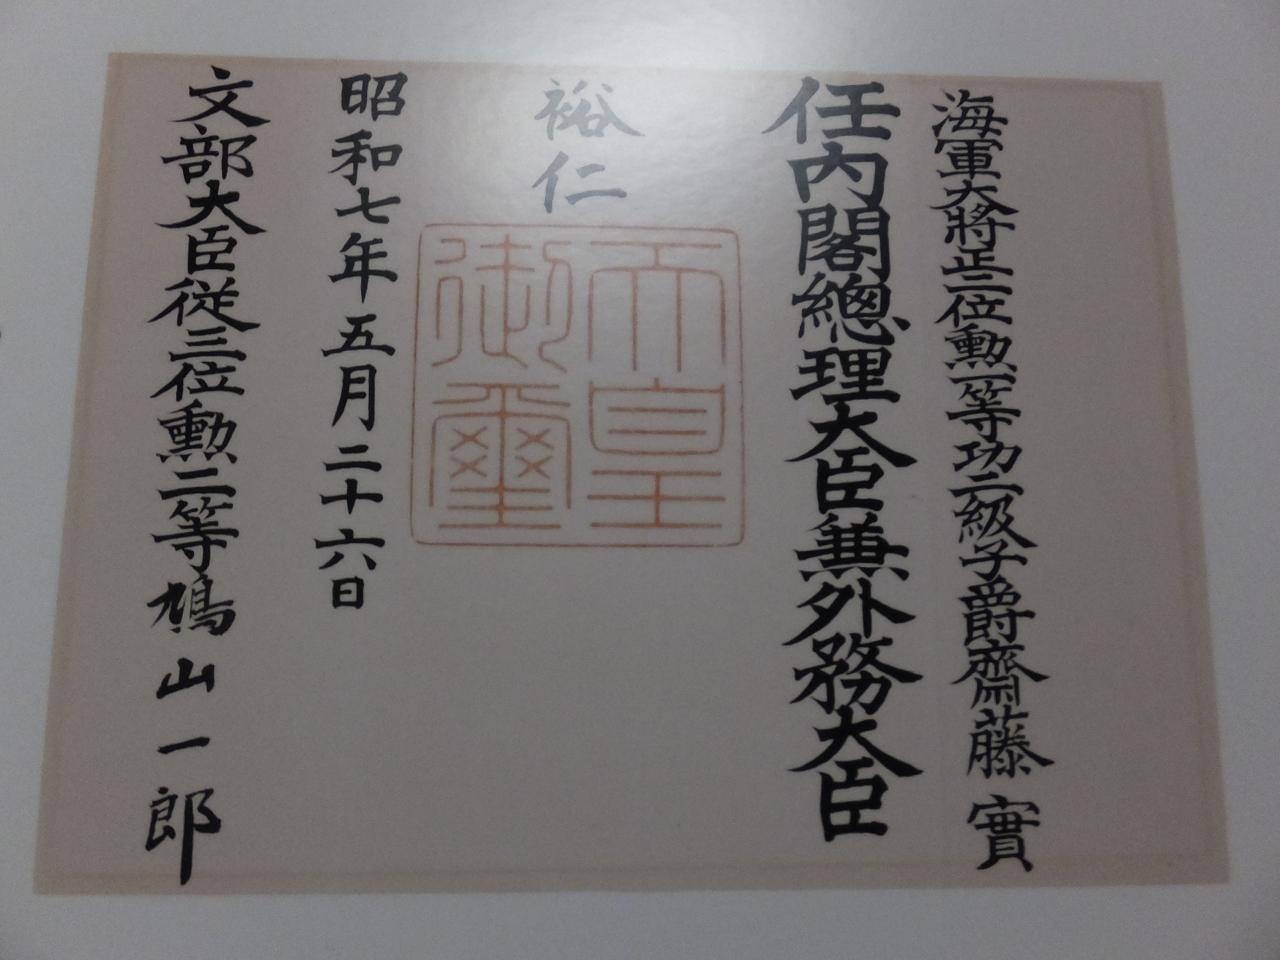 海軍大將正二位勲一等功二級子爵齋藤實
任内閣總理大臣兼外務大臣
裕仁
天皇
御璽
昭和七年五月二十六日
文部大臣従三位勲二等鳩山一郎